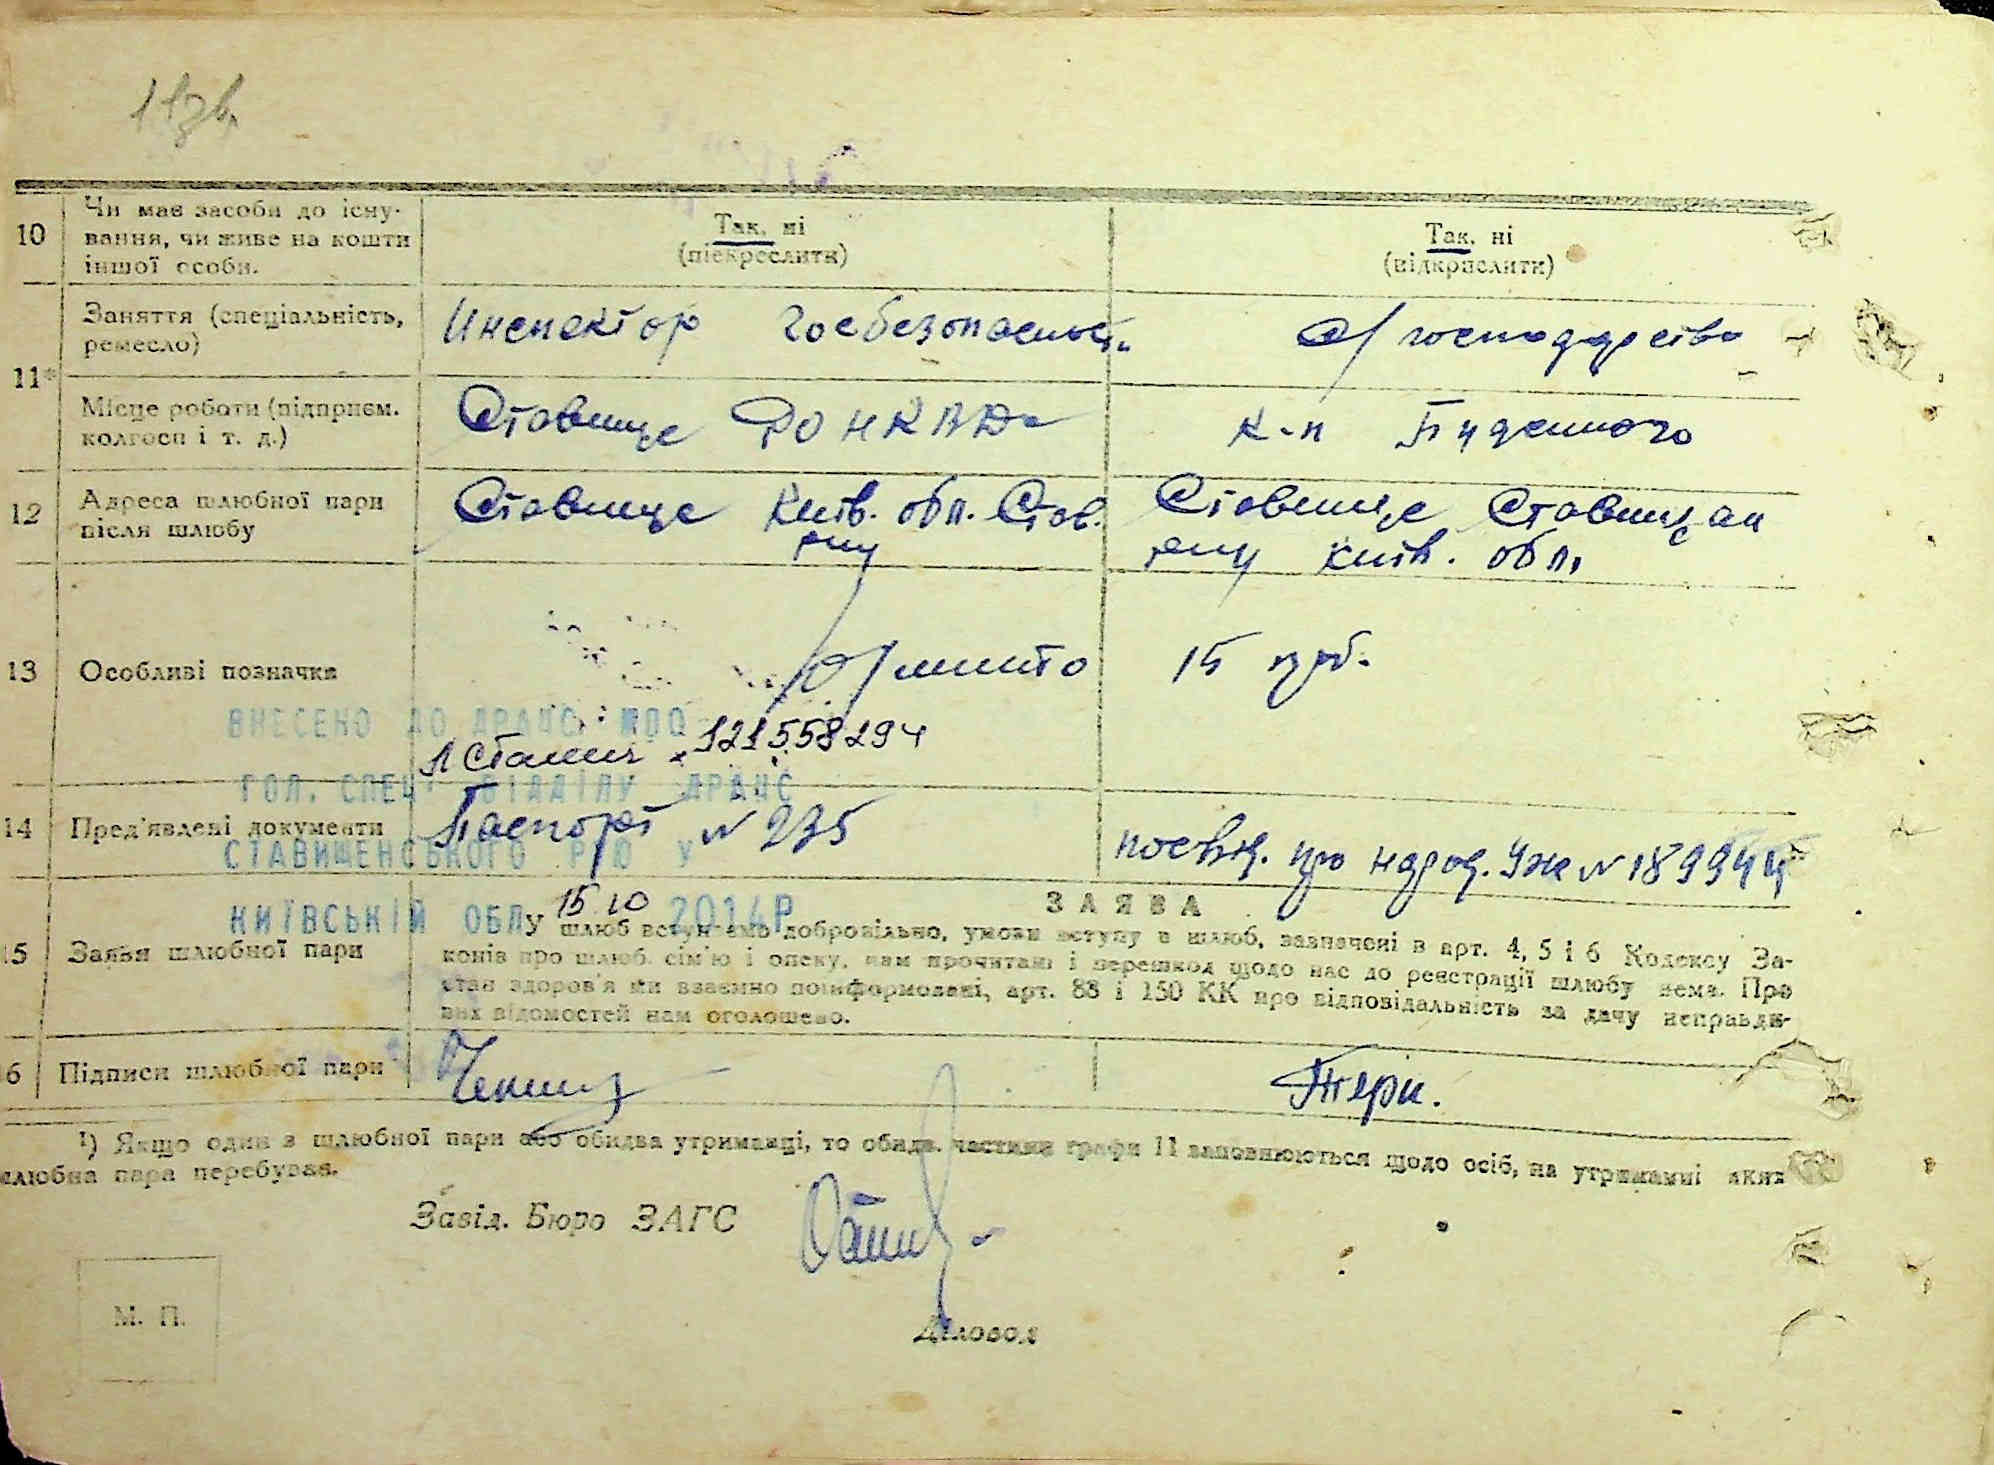 1 зв.
10
Чи має засоби до існу-
вання, чи живе на кошти
іншої особи.
Так, ні
(підкреслити)
Так, ні
(підкрислити)
11
Заняття (спеціальність,
ремесло)
Инспектор госбезопасности
с/господарство
Місце роботи (підприєм.
колгосп і т. д.)
Ставище РО НКВД
к-п Буденного
12
Адреса шлюбної пари
після шлюбу
Ставище Київ. обл. Став.
р-ну
Ставище Ставищан
р-ну Київ. обл.
13
Особливі позначки
мито 15 крб.
ВНЕСЕНО ДО ДРАЦС
121558294
ГОЛ. СПЕЦ ВІДДІЛУ ДРАЦС
14
Пред'явлені документи
Паспорт № 235
посвід. про народ. № 189944
СТАВИЩЕНСЬКОГО РЮ У
КИЇВСЬКІЙ ОБЛ 15 10 2014Р
15
Заява шлюбної пари
ЗАЯВА
У шлюб вступаємо добровільно, умови вступу в шлюб, зазначені в арт. 4, 5 і 6 Кодексу За-
конів про шлюб, сім'ю і опеку, нам прочитані і перешкод щодо нас до реєстрації шлюбу нема. Про
стан здоров'я ми взаємно поінформовані, арт. 88 і 150 КК про відповідальність за дачу неправди-
вих відомостей нам оголошено.
6
Підписи шлюбної пари
¹) Якщо один з шлюбної пари або обидва утриманці, то обидв. частини графи 11 заповнюються щодо осіб, на утриманні яких
шлюбна пара перебуває.
Завід. Бюро ЗАГС
М. П.
Діловод